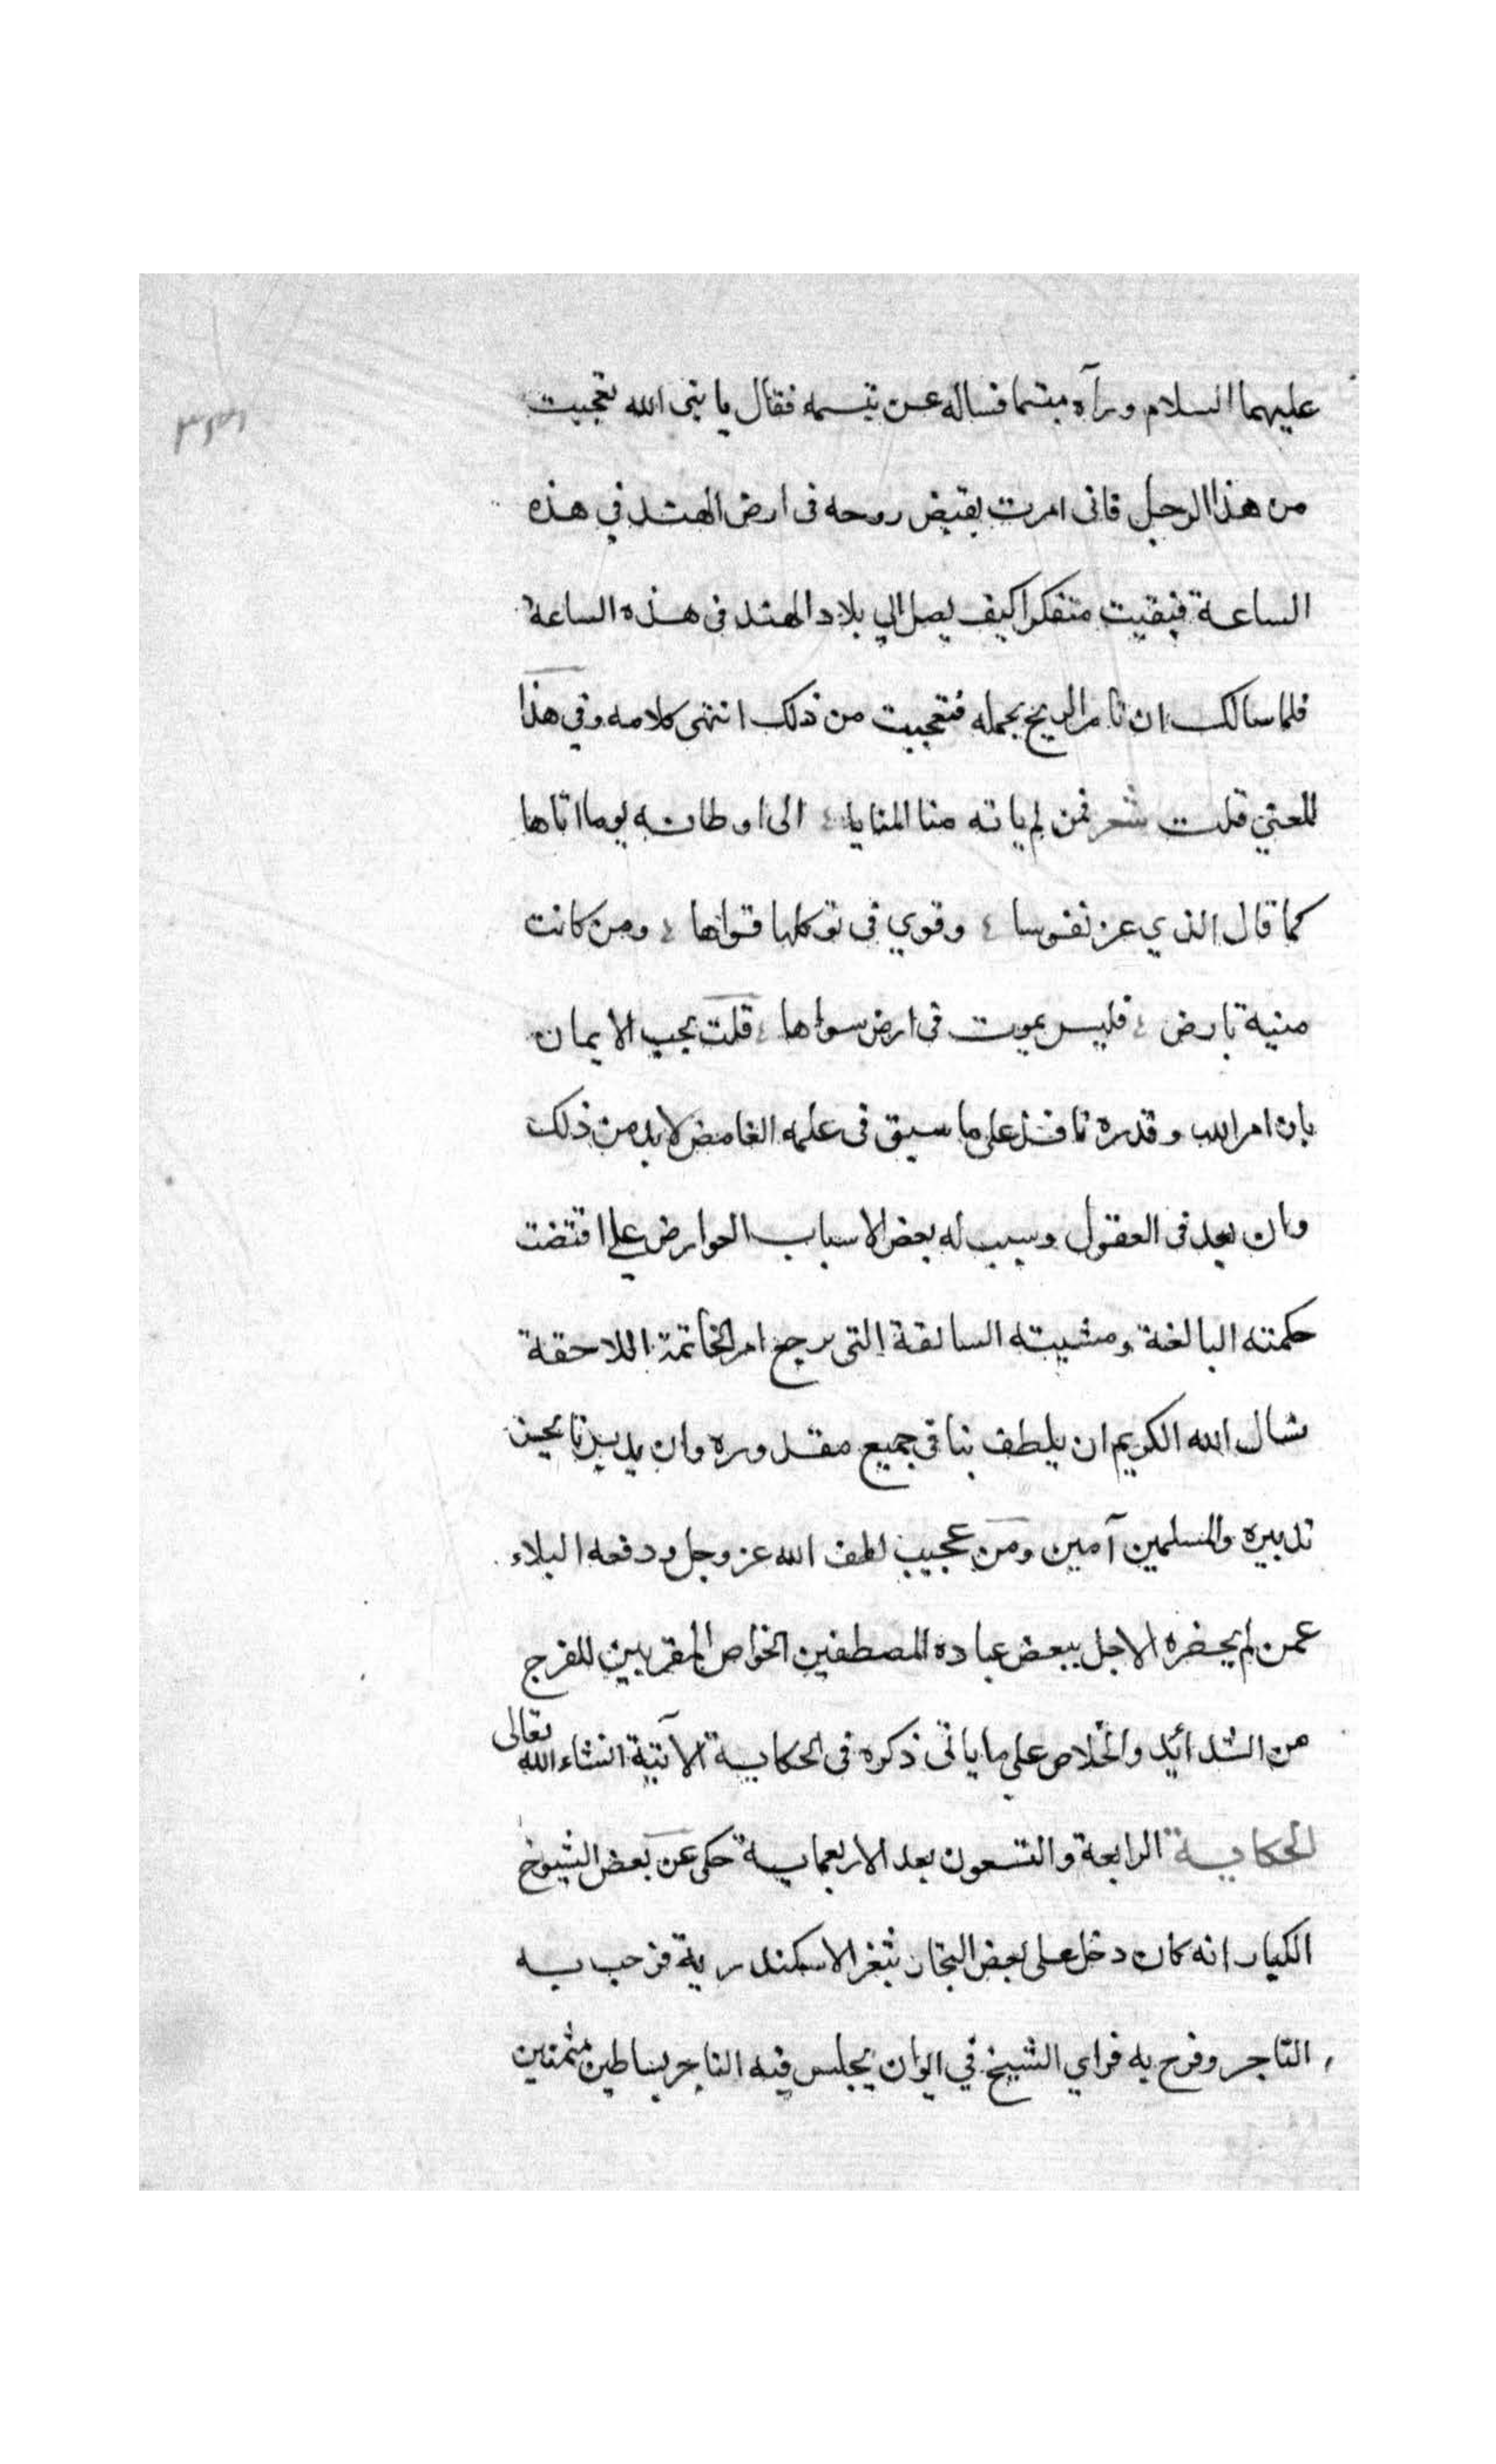 عليهما السلام ورآه مبتسما فساله عن تبسمه فقال يا نبي الله تعجبت
من هذا الرجل فاني امرت بقبض روحه في ارض الهند في هذه
الساعة فبقيت متفكرا كيف يصل الي بلاد الهند في هذه الساعة
فلما سالك ان تامر الريح بحمله فتعجبت من ذلك انتهى كلامه وفي هذا
المعني قلت شعر فمن لم ياته منا المنايا الى اوطانه يوما اتاها
كما قال الذي عز نفوسا وقوي في توكلها قواها ومن كانت
منية بارض فليس يموت في ارض سواها قلت يجب الايمان
بان امر الله وقدره نافذ على ما سبق في علمه الغامض لابد من ذلك
وان بعد في العقول وسبب له بعض الاسباب العوارض علي ما اقتضت
حكمته البالغة ومشيته السابقة التي يرجع امر الخاتمة اللاحقة
نسال الله الكريم ان يلطف بنا في جميع مقدوره وان يدبرنا بحسن
تدبيره والمسلمين آمين ومن عجيب لطف الله عز وجل ودفعه البلاء
عمن لم يحضره الاجل ببعض عباده المصطفين الخواص المقربين للفرج
من الشدائد والخلاص علي ما ياتي ذكره في الحكاية الآتية انشاء الله تعالى
الحكاية الرابعة والتسعون بعد الاربعماية حكى عن بعض الشيوخ
الكبار انه كان دخل على بعض التجار بثغر الاسكندرية فرحب به
التاجر وفرح به فراي الشيخ في ايوان يجلس فيه التاجر بساطين مثمنين